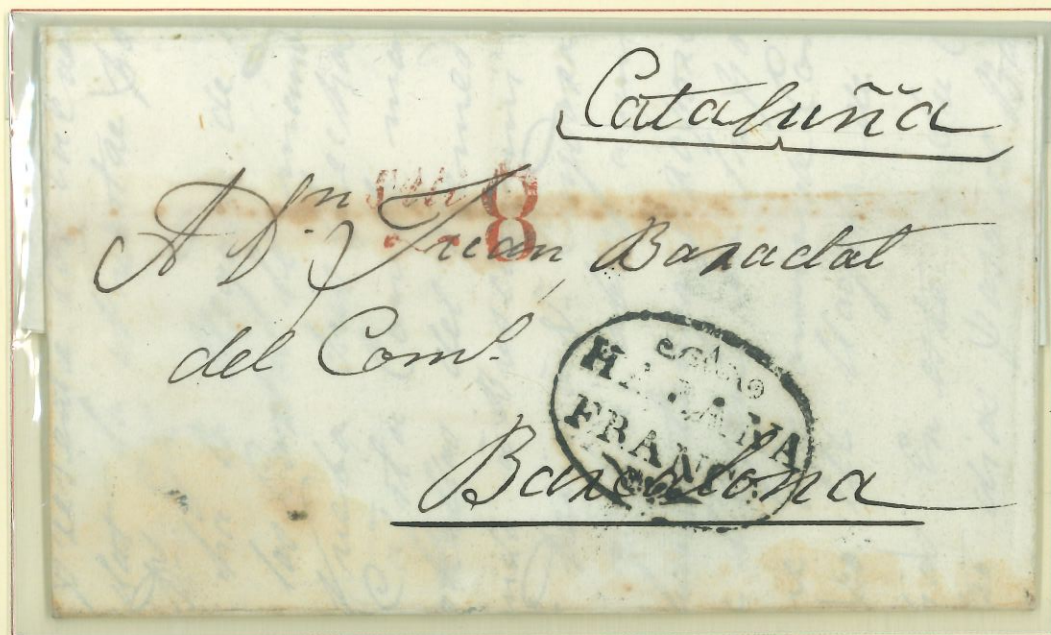 Cataluña
8
A Dn. Juan Baradat
del Como.
HABANA
FRANCO
Barcelona